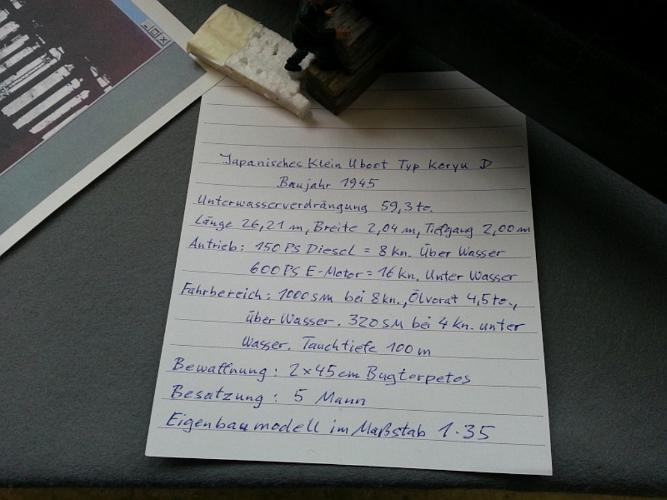 Japanisches Klein Uboot Typ Koryu D
Baujahr 1945
Unterwasserverdrängung 59,3 to.
Länge 26,21 m, Breite 2,04 m, Tiefgang 2,00 m
Antrieb: 150 PS Diesel = 8 kn. Über Wasser
600 PS E-Motor = 16 kn, Unter Wasser
Fahrbereich: 1000 sm bei 8 kn., Ölvorat 4,5 to.,
über Wasser. 320 SM bei 4 kn. unter
Wasser. Tauchtiefe 100 m
Bewaffnung: 2 x 45 cm Bugtorpetos
Besatzung: 5 Mann
Eigenbaumodell im Maßstab 1.35